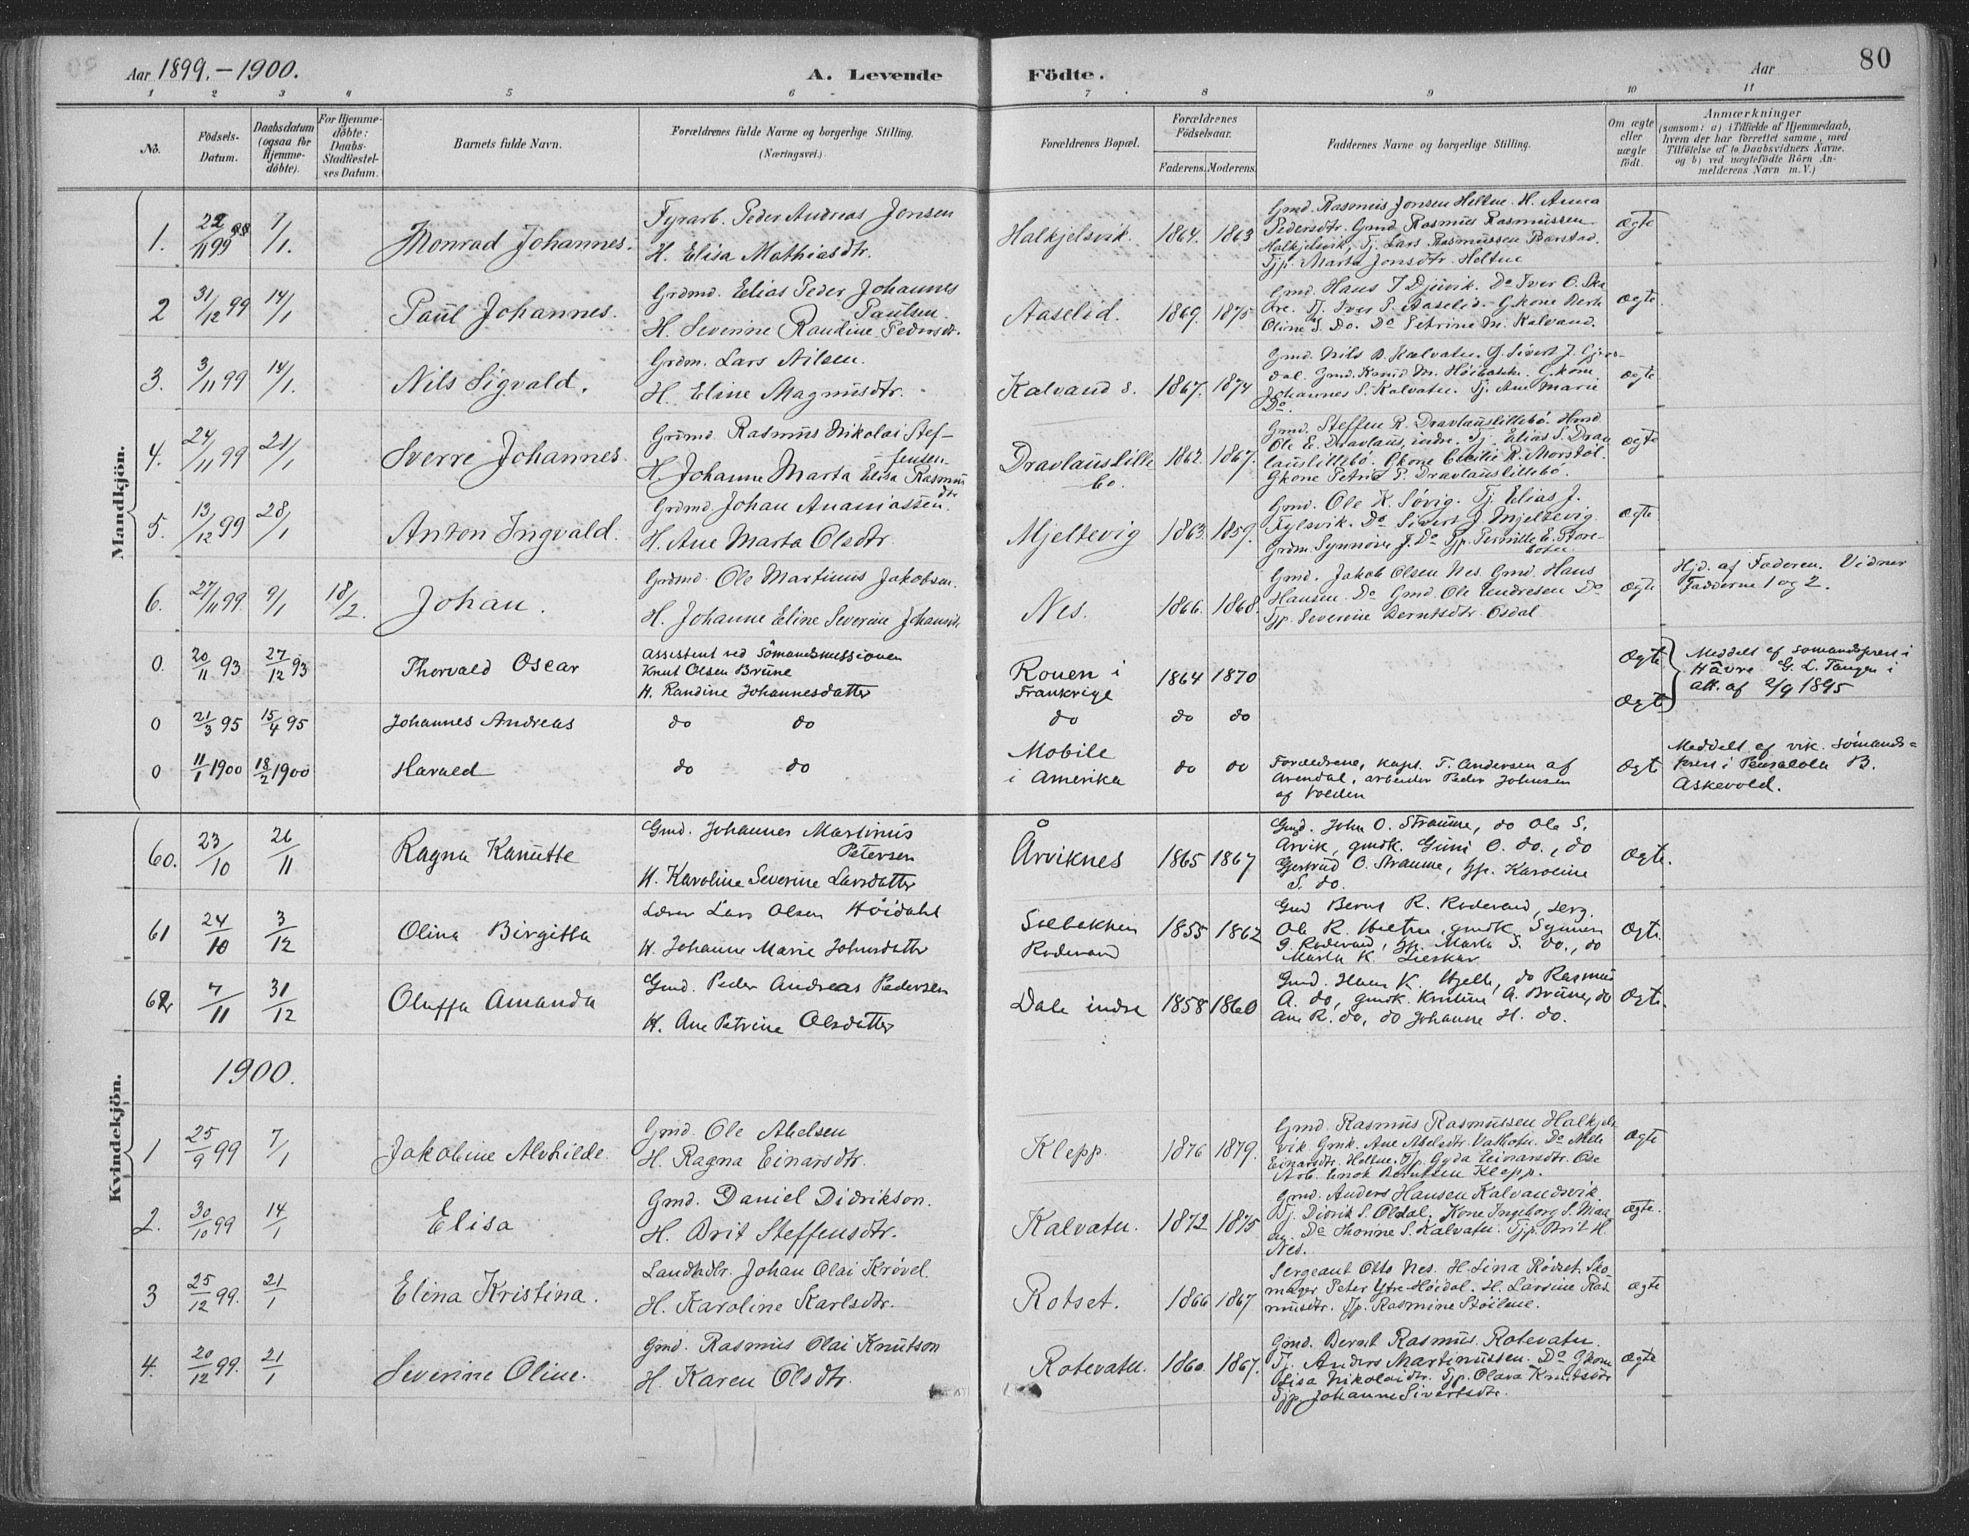 Aar 1899.-1900.
A. Levende Födte.
Aar
80
1 2 3 4 5 6 7 8 9 10 11
No.
Födsels-
Datum.
Daabsdatum
(ogsaa for
Hjemme-
döbte).
For Hjemme-
döbte:
Daabs-
Stadfæstel-
ses Datum.
Barnets fulde Navn.
Forældrenes fulde Navne og borgerlige Stilling.
(Næringsvei.)
Forældrenes Bopæl.
Forældrenes
Födselsaar.
Faderens. Moderens.
Faddernes Navne og borgerlige Stilling.
Om ægte
eller
uægte
födt.
Anmærkninger
(saasom: a) i Tilfælde af Hjemmedaab,
hvem der har forrettet samme, med
Tilföielse af to Daabsvidners Navne,
og b) ved uægtefödte Börn An-
melderens Navn m. V.)
Mandkjön.
1. 22/11 99 7/1. Monrad Johannes.
Fyrarb. Peder Andreas Jensen
H. Elisa Mathiasdtr.
Halkjelsvik. 1864. 1863
Gmd. Rasmus Jonsen Heltne. H. Anna
Pedersdtr. Gmd Rasmus Rasmussen
Halkjelsvik, Tj. Lars Rasmussen Barstad.
Tjp. Marta Jonsdtr. Heltne
ægte
2 31/12 99 14/1 Paul Johannes.
Grdmd. Elias Peder Johannes
Paulsen.
H. Severine Raudine Pedersdtr.
Aaselid. 1869. 1875
Gmd. Hans J Djuvik. Do Iver O. Ska
are. Tj. Iver P. Aaselid. Gkone Berte
Oline S. Do. Do Petrine M. Kalvand.
ægte.
3. 3/11 99 14/1. Nils Sigvald.
Grdm. Lars Nilsen.
H. Eline Magnusdtr.
Kalvand s. 1867. 1874
Gmd. Nils D. Kalvatn. G. Sivert J. Gjer-
dal. Gmd. Knud M. Gkone.
Johannes S. Kalvatn. Tj. Ane Marie
Do.
ægte
4. 24/11 99 21/1 Sverre Johannes.
Grdmd. Rasmus Nikolai Stef-
fensen.
H. Johanne Marta Elisa Rasmus
dtr
Dravlauslille
bø. 1862. 1867.
Gmd. Steffen R. Dravlauslillebö. Hmd
Ole E. Dravlaus, indre. Tj. Elias S. Drav
lauslillebö. Gkone Cecilie R. Morstöl.
Gkone Petrid P. Dravlauslillebö.
ægte
5. 13/12 99 28/1 Anton Ingvald.
Grdmd. Johan Ananiassen.
H. Ane Marta Olsdtr.
Mjeltevig 1863. 1859.
Gmd. Ole K. Søvig. Tj. Elias J.
Fylsvik. Do Sivert J. Mjeltevig.
Grdm. Synnöve J. Do Tjp. Pernille E. Store-
boten
ægte
6. 27/11 99. 9/1 18/2. Johan.
Grdmd. Ole Martinus Jakobsen.
H. Johanne Eline Severine Johansdtr
Nes. 1866. 1868.
Gmd. Jakob Olsen Nes. Gmd. Hans
Hansen Do Gmd Ole Endresen Do
Tjp. Severine Berntsdtr. Osdal.
ægte
Hjd. af Faderen. Vidner
Fadderne 1 og 2.
0. 20/11 93 27/12 93 Thorvald Oscar
Assistent ved Sömandsmissionen
Knut Olsen Brüne
H. Randine Johannesdatter
Rouen i
Frankrige 1864 1870
Ægte
Meddelt af Somandsprest i
Håvre G. L. Tangen i
att. af 2/9 1895
0 21/3 95 15/4 95 Johannes Andreas do do do do do Ægte
0 11/1 1900 18/2 1900 Harald do do
Mobile
i Amerika do do
Forældrene, Kapt. T. Andersen af
Arendal, arbeider Peder Johnsen
af Volden
Ægte
Meddelt af vik. Sömands-
prest i Pensacola B.
Askevold.
Kvindekjön.
60. 23/10 26/11 Ragna Kanutte
Gmd. Johannes Martinus
Petersen
H. Karoline Severine Larsdatter
Årviknes 1865 1867
Gmd. John O. Straume, do Ole S.
Arvik, gmdk. Guni O. do., do
Gjertrud O. Straume, Gjp. Karoline
S. do.
Ægte.
61 24/10 3/12 Olina Birgitta
Lærer Lars Olsen Höidahl
H. Johanne Marie Johnsdatter
Solbakken
Rodevand 1855 1862
Gmd Bernt R. Rodevand, Serg.
Ole R. Heltne, gmdk. Synnev
G. Rodevand, Gjp. Marta S. do., do
Marta K. Lieskar
Ægte.
62 7/11 31/12 Oluffa Amanda
Gmd. Peder Andreas Pedersen
H. Ane Petrine Olsdatter
Dale indre 1858 1860
Gmd. Hans K. Hjelle, do Rasmus
A. do, gmdk. Kristine A. Brüne, do
Ane R. do, do Johanne H. do.
Ægte.
1900.
1 25/9 99 7/1 Jakobine Alvhilde.
Gmd. Ole Abelsen
H. Ragna Einarsdtr.
Klepp. 1876 1879.
Gmd. Rasmus Rasmussen Halkjels
vik Gmk. Ane Abelsdtr. Vatne. Do Mele
Einarsdtr. Heltne. Tjp. Gyda Einarsdtr. Ose
Arb. Enok Berntsen Klepp.
Ægte
2. 30/10 99 14/1 Elisa
Gmd. Daniel Didrikson.
H. Brit Steffensdtr.
Kalvatn. 1872 1875
Gmd. Anders Hansen Kalvandsvik.
Tj. Didrik S. Osdal. Kone Ingeborg S. Maa
Do Thorine S. Kalvatn. Tjp. Brit H.
Nes.
ægte.
3 25/12 99. 21/1 Elina Kristina.
Landhdlr. Johan Olai Krövel.
H. Karoline Karlsdtr.
Rotset. 1866 1867
Sergeant Otto Nes. H. Lina Rödset. Sko
mager Peter Ytre-Höidal. H. Lavine Ras
musdtr. Tjp. Rasmine Stöilene.
ægte
4. 20/12 99. 21/1 Severine Oline.
Gmd. Rasmus Olai Knutson
H. Karen Olsdtr.
Rotevatn. 1860. 1867.
Gmd. Bernt Rasmus. Rotevatn.
Tj. Anders Martinussen. Do Gkone
Lisa Nikolaidtr. Tjp. Olava Knutsdtr
Tjp. Johanne Sivertsdtr.
Ægte